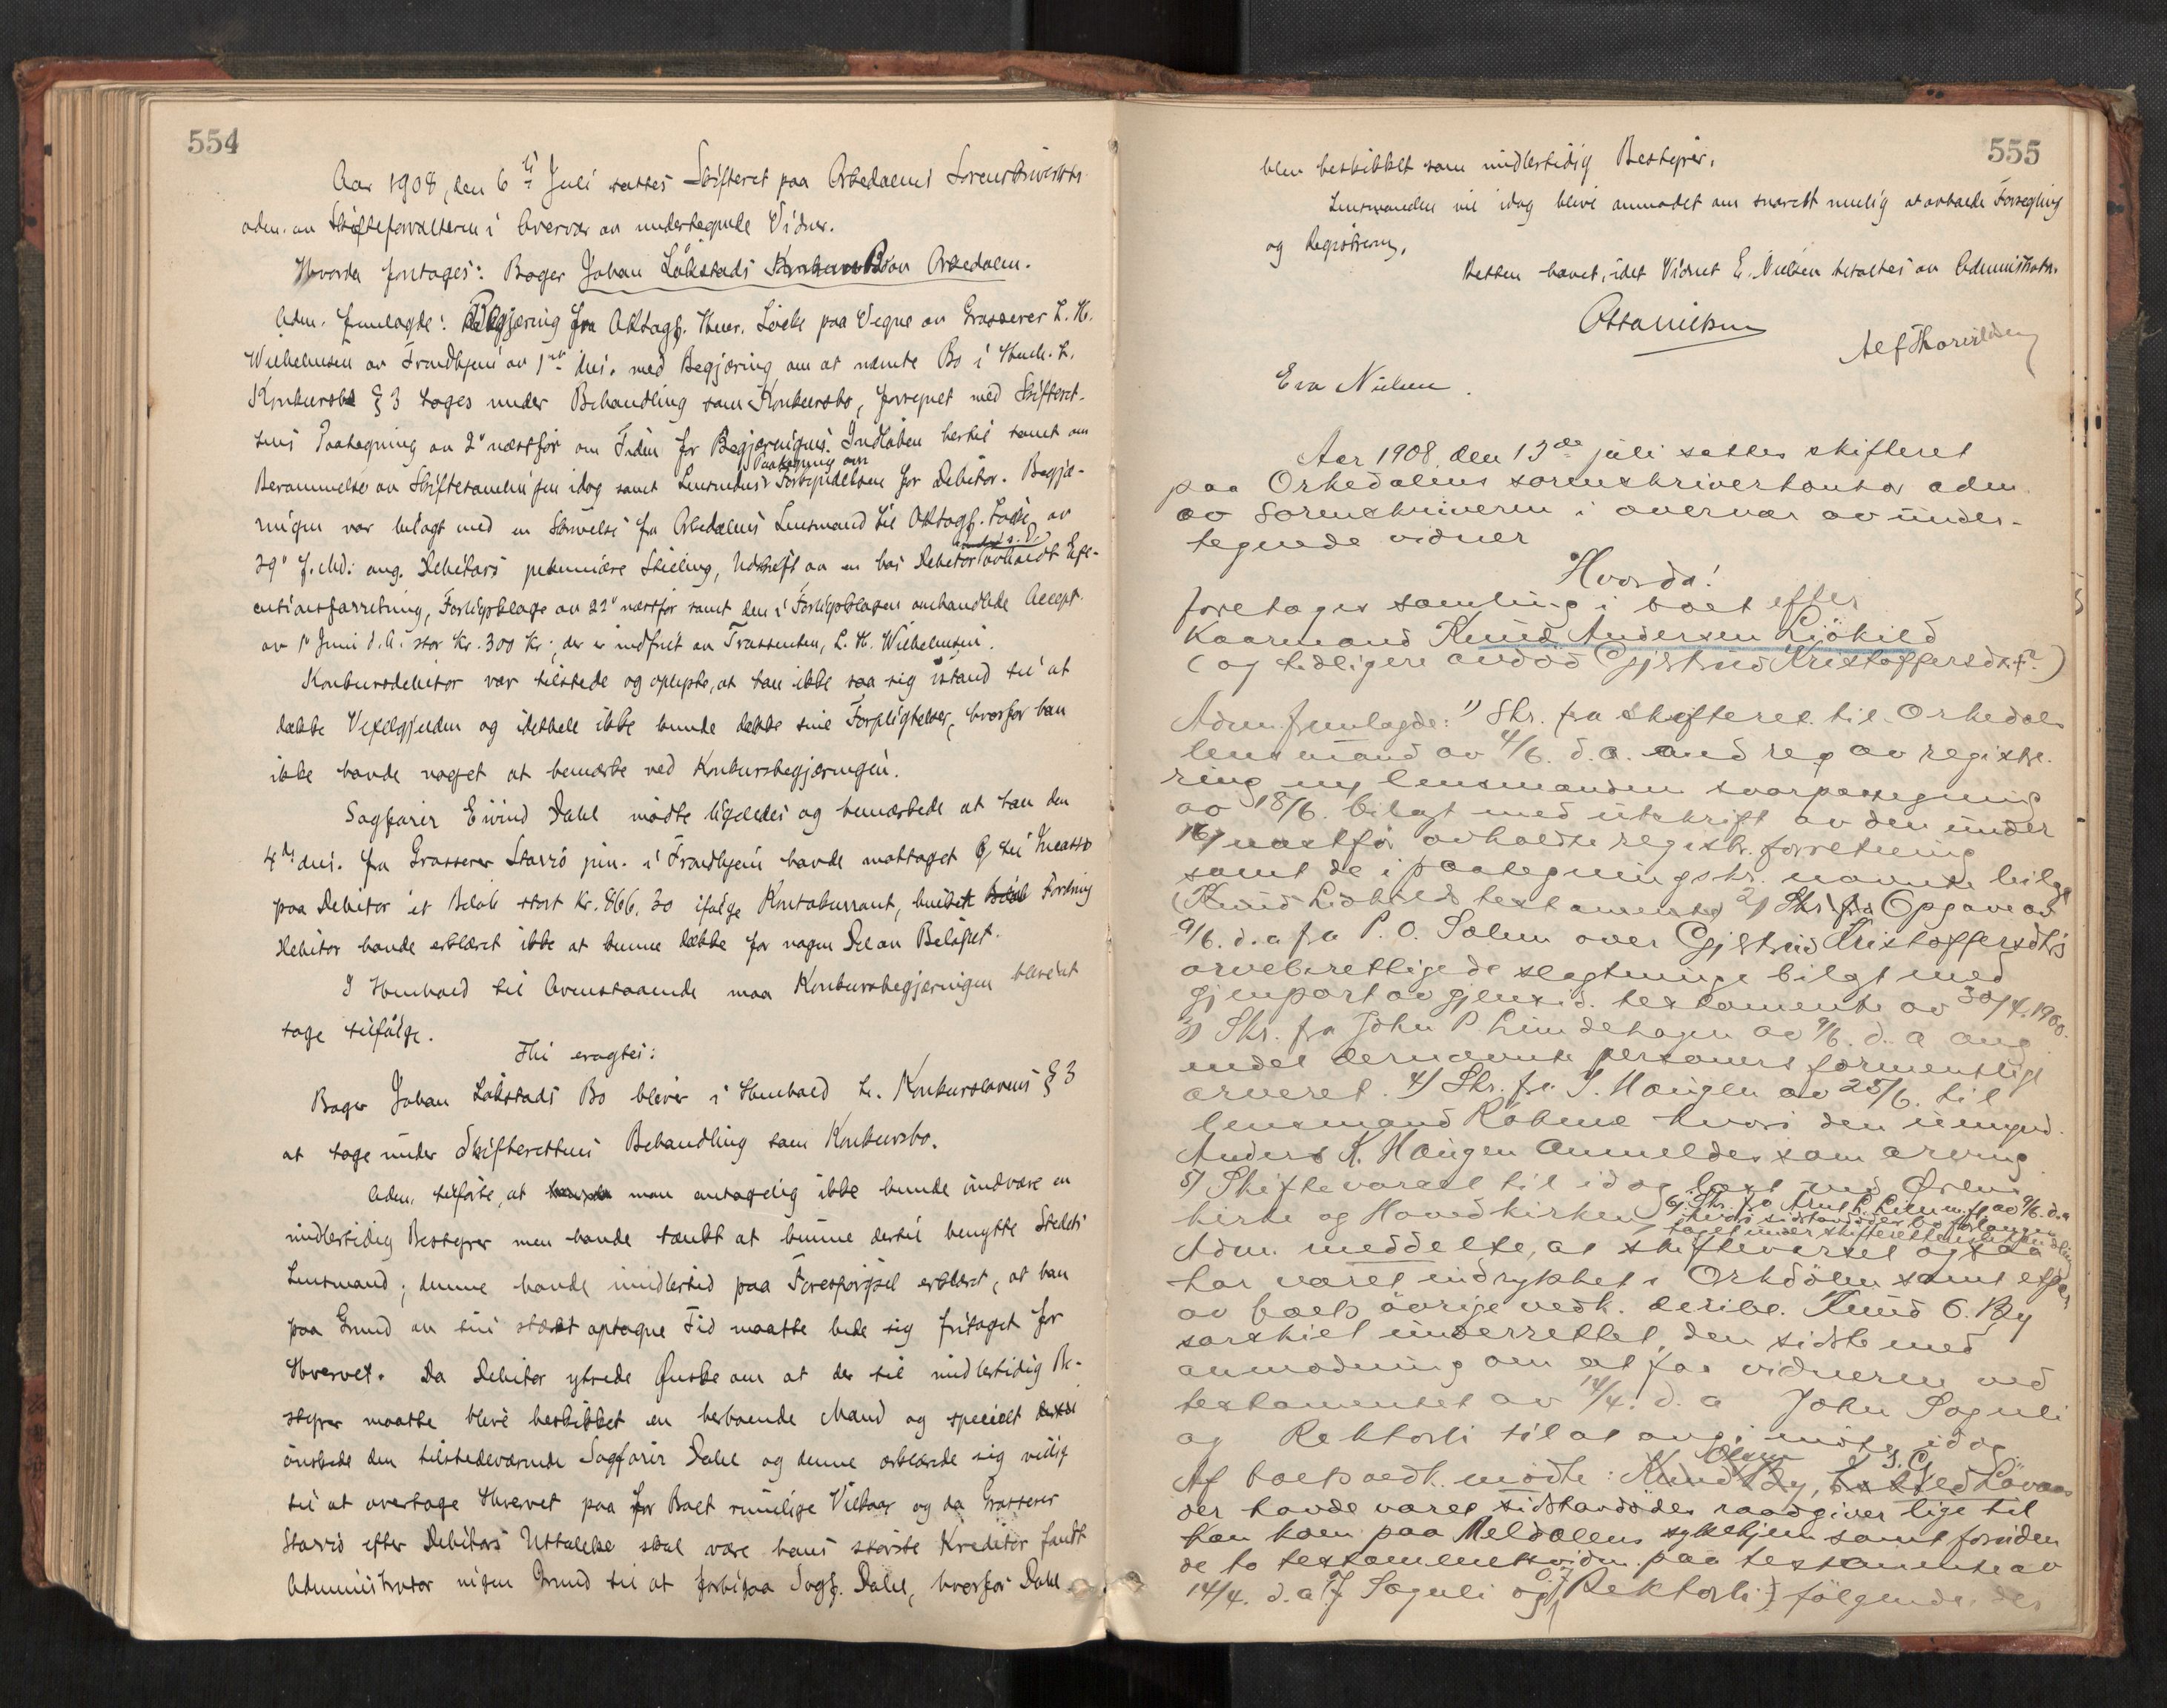 554
Aar 1908, den 6te Juli sattes Skifteret paa Orkedalens Sorenskriverkontor
adm. av Skifteforvalteren i Overvær av undertegnede Vidner.
Hvorda foretages: Bager Johan Løkstads Konkursbo av Orkedalen.
Adm. fremlagde: Begjæring fra O.R.sagf. Løcke paa Vegne av Grosserer L. H.
Wilhelmsen av Trondhjem av 1ste dns. med Begjæring om at nævnte Bo i Henh. t.
Konkursl. § 3 tages under Behandling som Konkursbo, forsynet med Skifteret-
tens Paategning av 2' næstfør om Tiden for Begjæringens Indkomst hertil samt om
Berammelse av Skiftesamlingen idag samt Lensmandens Paategning om Forkyndelsen for Debitor. Begjæ-
ringen var bilagt med en Skrivelse fra Orkedalens Lensmand til O.R.sagf. Løcke av
29' f. Md. ang. Debitors pekuniære Stilling, Utskrift av en hos Debitor avholdt Eks-
eutionsforretning, Forligsklage av 22' næstfør samt den i Forligsklagen omhandlede Accept
av 1' Juni d. A. stor Kr. 300 Kr.; der er indfriet av Trassenten, L. H. Wilhelmsen.
Konkursdebitor var tilstede og oplyste, at han ikke saa sig istand til at
dække Vexelgjælden og idethele ikke kunde dække sine Forpligtelser, hvorfor han
ikke havde noget at bemærke ved Konkursbegjæringen.
Sagfører Eivind Dahl mødte ligeledes og bemærkede at han den
4de dns. fra Grosserer Starrø jun. i Trondhjem havde mottaget til Incasso
paa Debitor et Beløb stort Kr. 866.30 ifølge Kontokurrant, hvilket Fordring
Debitor havde erklæret ikke at kunne dække for nogen Del av Beløpet.
I Henhold til Ovenstaaende maa Konkursbegjæringen blive at
tage tilfølge.
Thi eragtes:
Bager Johan Løkstads Bo bliver i Henhold t. Konkurslovens § 3
at tage under Skifterettens Behandling som Konkursbo.
Adm. tilførte, at man antagelig ikke kunde undvære en
midlertidig Bestyrer men havde tænkt at kunne dertil benytte Stedets
Lensmand; denne havde imidlertid paa Forespørgsel erklæret, at han
paa Grund av sin stærkt optagne Tid maatte bede sig fritaget for
Hvervet. Da Debitor ytrede Ønske om at der til midlertidig Be-
styrer maatte blive beskikket en herboende Mand og specielt
ønskede den tilstedeværende Sagfører Dahl og denne erklærede sig villig
til at overtage Hvervet paa for Boet rimelige Vilkaar og da Grosserer
Starrø efter Debitors Uttalelse skal være hans største Kreditor fandt
Administrator ingen Grund til at forbigaa Sagf. Dahl, hvorfor Dahl
555
blev beskikket som midlertidig Bestyrer.
Lensmanden vil idag blive anmodet om snarest mulig at avholde Forsegling
og Registrering.
Retten hævet, idet Vidnet E. Nielsen betaltes av Administrator.
Otto Nielsen
Alf Thorvildsen
Eva Nielsen.
Aar 1908, den 13de juli sattes skifteret
paa Orkedalens sorenskriverkontor adm.
av sorenskriveren i overvær av under-
tegnede vidner
Hvorda!
foretages samling i boet efter
Kaarmand Knud Andersen Ljøkild
(og tidligere avdød Gjertrud Kristoffersdt.)
Adm. fremlagde: 1) Skr. fra skifteret til Orkedals
lensmand av 4/6. d.a. med req. av registre-
ring m lensmanden svarpaategning
av 18/6. bilagt med utskrift av den under
16/ næstfør avholdte registr.forretning
samt de i paategningsskr. nævnte bilag
(Knud Liøkilds testamente) 2) Opgave av
9/6. d.a. fra P. O. Solem over Gjertrud Kristoffersdts
arveberettigede slegtninge bilagt med
gjenpart av gjensid. testamente av 30/4. 1900.
3) Skr. fra John P. Lindehagen av 9/6. d. a. ang
endel dernævnte personers formentlige
arveret. 4) Skr. fra I. Haugen av 25/6. til
lensmand Robine hvori den umynd.
Anders K. Haugen anmeldes som arving
5) Skiftevarsel til idag læst ved
kirke og Hovedkirken 6) Skr. fra av 9/6. d.a
hvori sidstavdødes bo forlanges
taget under skifterettens behandling
Adm. meddelte, at skiftevarsel ogsaa
har været indrykket i Orkdølen samt efter
av boets øvrige vedk. deribl. Knud O. By
særskilt underrettet, den sidste med
anmodning om at faa vidnerne ved
testamentet av 14/4. d. a John Saguli
og Rektorli til at møte idag
Af boets vedk. mødte: Knud Olsen By,
der havde været sidstavdødes raadgiver lige til
han kom paa Meldalens sykehjem samt foruden
de to testamentsvidn. paa testamente av
14/4. d.a. J Saguli og O. J. Rektorli følgende der